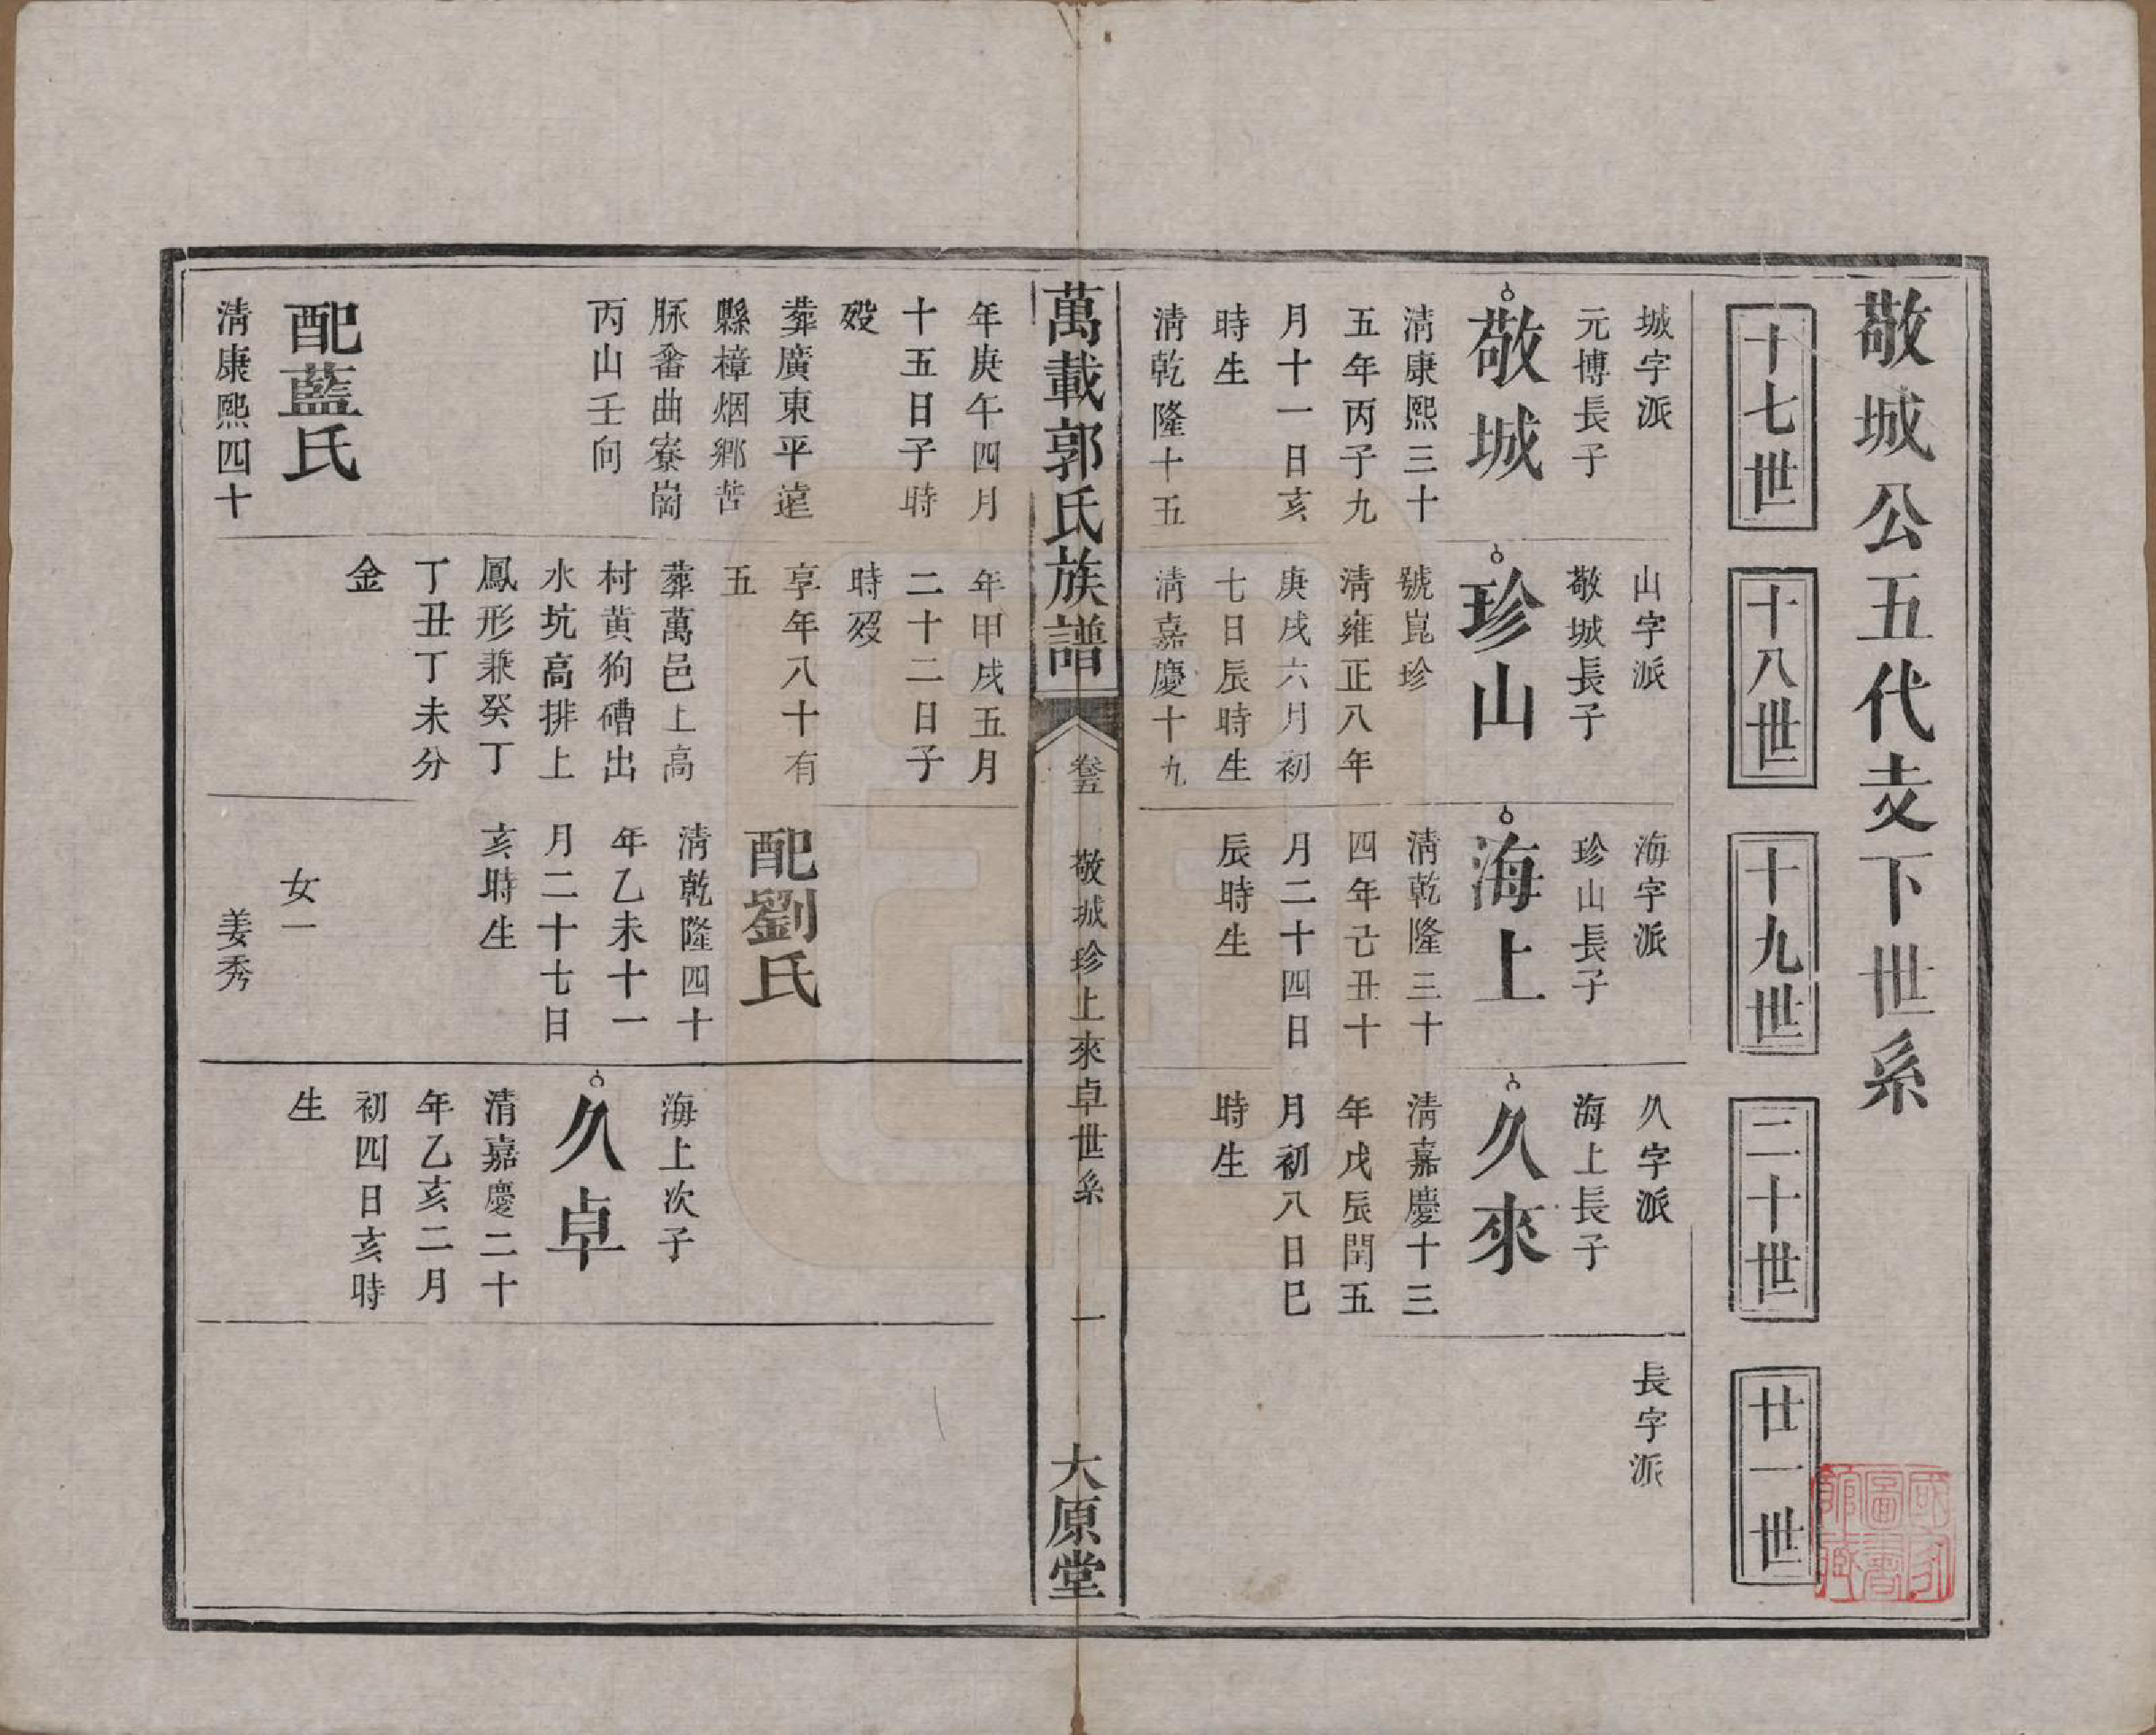 敬城公五代支下世系
十七世
十八世
十九世
二十世
廿一世
城字派
元博長子
敬城
淸康熙三十
五年丙子九
月十一日亥
時生
淸乾隆十五
年庚午四月
十五日子時
歿
葬廣東平遠
縣樟烟鄉苦
脉畨曲寮崗
丙山壬向
配藍氏
淸康熙四十
山字派
敬城長子
珍山
號崑珍
淸雍正八年
庚戌六月初
七日辰時生
淸嘉慶十九
年甲戌五月
二十二日子
時歿
享年八十有
五
葬萬邑上高
村黄狗磳出
水坑高排上
鳳形兼癸丁
丁丑丁未分
金
海字派
珍山長子
海上
淸乾隆三十
四年己丑十
月二十四日
辰時生
配劉氏
淸乾隆四十
年乙未十一
月二十七日
亥時生
女一
姜秀
久字派
海上長子
久來
淸嘉慶十三
年戊辰閏五
月初八日巳
時生
海上次子
久卓
清嘉慶二十
年乙亥二月
初四日亥時
生
長字派
萬載郭氏族譜
卷五
敬城珍上來卓世系
一
大原堂
國家圖書館藏